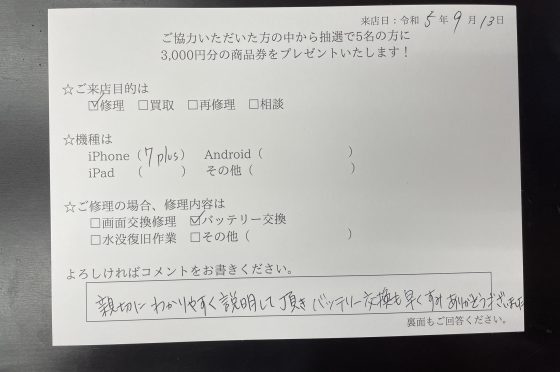 来店日：令和 5 年 9 月 13 日
ご協力いただいた方の中から抽選で5名の方に
3,000円分の商品券をプレゼントいたします！
☆ご来店目的は
☑修理 □買取 □再修理 □相談
☆機種は
iPhone（7plus） Android（ ）
iPad （ ） その他（ ）
☆ご修理の場合、修理内容は
□画面交換修理 ☑バッテリー交換
□水没復旧作業 □その他（ ）
よろしければコメントをお書きください。
親切にわかりやすく説明して頂きバッテリー交換も早くすみありがとうございました
裏面もご回答ください。